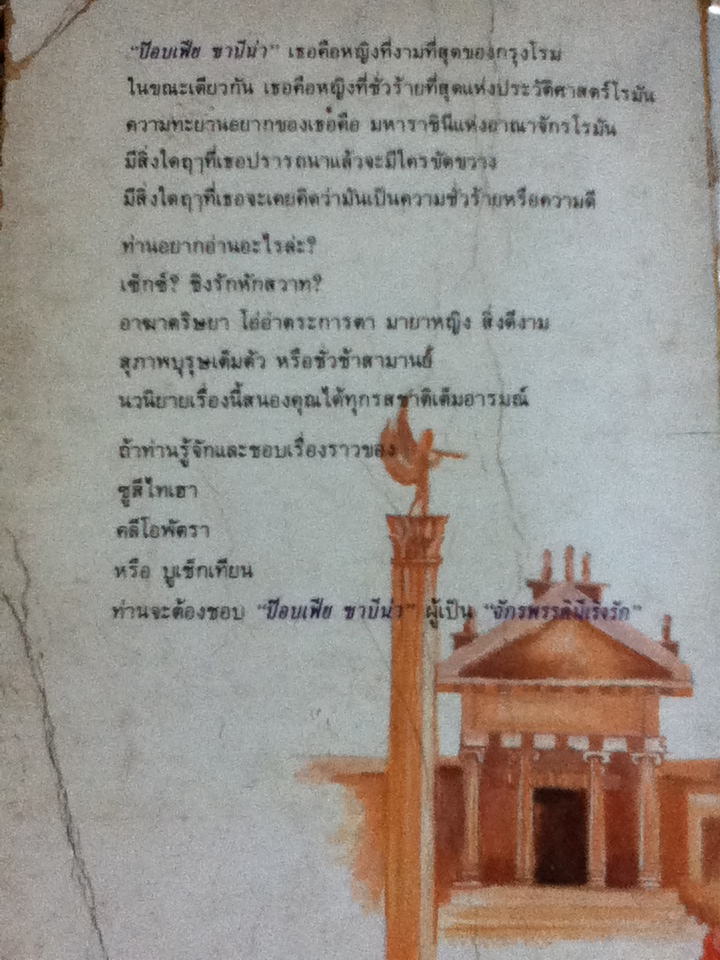 "ป๊อบเฟีย ซาบีน่า" เธอคือหญิงที่งามที่สุดของกรุงโรม
ในขณะเดียวกัน เธอคือหญิงที่ชั่วร้ายที่สุดแห่งประวัติศาสตร์โรมัน
ความทะยานอยากของเธอคือ มหาราชินีแห่งอาณาจักรโรมัน
มีสิ่งใดฤๅที่เธอปรารถนาแล้วจะมีใครขัดขวาง
มีสิ่งใดฤๅที่เธอจะเคยคิดว่ามันเป็นความชั่วร้ายหรือความดี
ท่านอยากอ่านอะไรล่ะ?
เซ็กซ์? ชิงรักหักสวาท?
อาฆาตริษยา โอ่อ่าตระการตา มายาหญิง สิ่งดีงาม
สุภาพบุรุษเต็มตัว หรือชั่วช้าสามานย์
นวนิยายเรื่องนี้สนองคุณได้ทุกรสชาติเต็มอารมณ์
ถ้าท่านรู้จักและชอบเรื่องราวของ
ซูสีไทเฮา
คลีโอพัตรา
หรือ บูเช็กเทียน
ท่านจะต้องชอบ "ป๊อบเฟีย ซาบีน่า" ผู้เป็น "จักรพรรดินีเริงรัก"